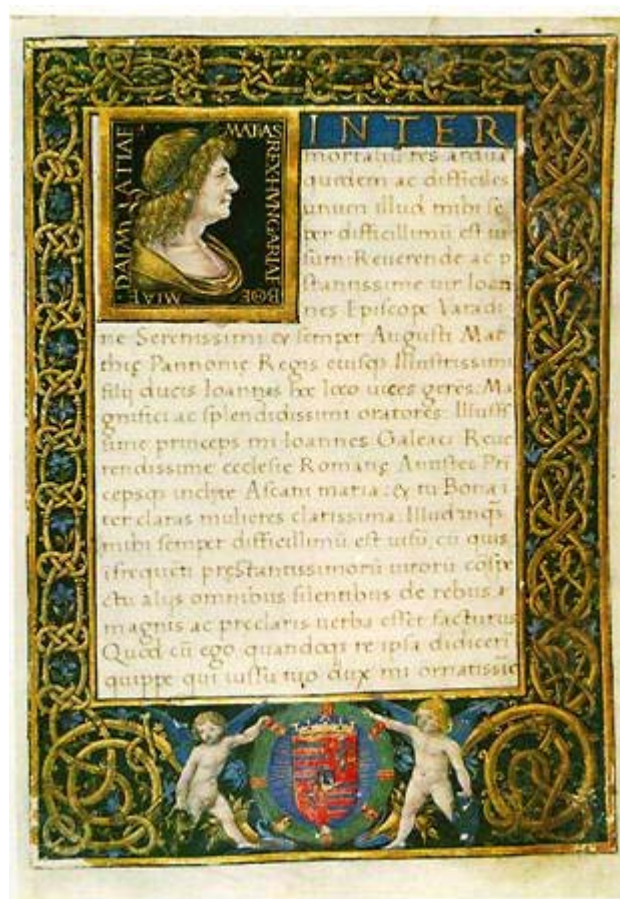 MATIAS REX HVNGARIAE BOE
MIAE DALMATIAE
INTER
mortaliū res ardua
quidem ac difficiles
unum illud mihi se
per difficillimū est ui
sum: Reuerende ac p
stantissime uir Ioan
nes Episcope Varadi
ne Serenissimi & semper Augusti Mat
thię Pannonię Regis eiusq; Illustrissimi
filij ducis Ioannis hoc loco uices geres: Ma
gnifici ac splendidissimi oratores: Illust
sime princeps mi Ioannes Galeaci Reue
rendissime ecclesie Romanę Antistes Pri
cepsq; inclite Ascani maria: & tu Bona i
ter claras mulieres clarissima: Illud inqs
mihi semper difficillimū est uisū, cū quis
i frequēti pręstantissimorū uirorū cōspe
ctu alijs omnibus silentibus de rebus
magnis ac preclaris uerba esset facturus
Quod cū ego quandoq; re ipsa didicerī
quippe qui iussu tuo dux mi ornatissi